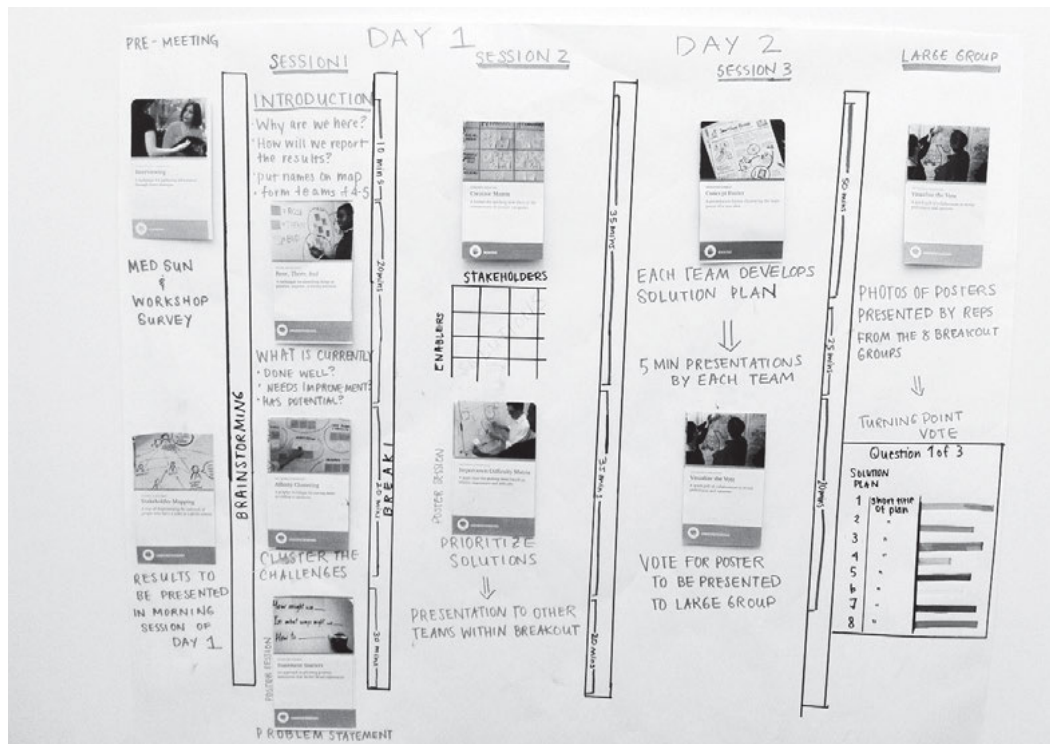 PRE-MEETING
DAY 1
DAY 2
SESSION 1
SESSION 2
SESSION 3
LARGE GROUP
Interviewing
MED SUN
&
WORKSHOP
SURVEY
Stakeholder Mapping
RESULTS TO
BE PRESENTED
IN MORNING
SESSION OF
DAY 1
BRAINSTORMING
INTRODUCTION
· Why are we here?
· How will we report
the results?
· put names on map
· form teams of 4-5
WHAT IS CURRENTLY
· DONE WELL?
· NEEDS IMPROVEMENT?
· HAS POTENTIAL?
Affinity Clustering
CLUSTER THE
CHALLENGES
How might we
In what ways might we
How to
Statement Starters
POSTER SESSION
PROBLEM STATEMENT
10 mins
20 mins
30 mins
30 mins
BREAK!
Creative Matrix
STAKEHOLDERS
ENABLERS
POSTER SESSION
Importance/Difficulty Matrix
PRIORITIZE
SOLUTIONS
PRESENTATION TO OTHER
TEAMS WITHIN BREAKOUT
35 mins
35 mins
20 mins
Concept Poster
EACH TEAM DEVELOPS
SOLUTION PLAN
5 MIN PRESENTATIONS
BY EACH TEAM
Visualize the Vote
VOTE FOR POSTER
TO BE PRESENTED
TO LARGE GROUP
50 mins
25 mins
20mins
Visualize the Vote
PHOTOS OF POSTERS
PRESENTED BY REPS
FROM THE 8 BREAKOUT
GROUPS
TURNING POINT
VOTE
Question 1 of 3
SOLUTION
PLAN
1 short title
of plan
2 "
3 "
4 "
5 "
6 "
7 "
8 "